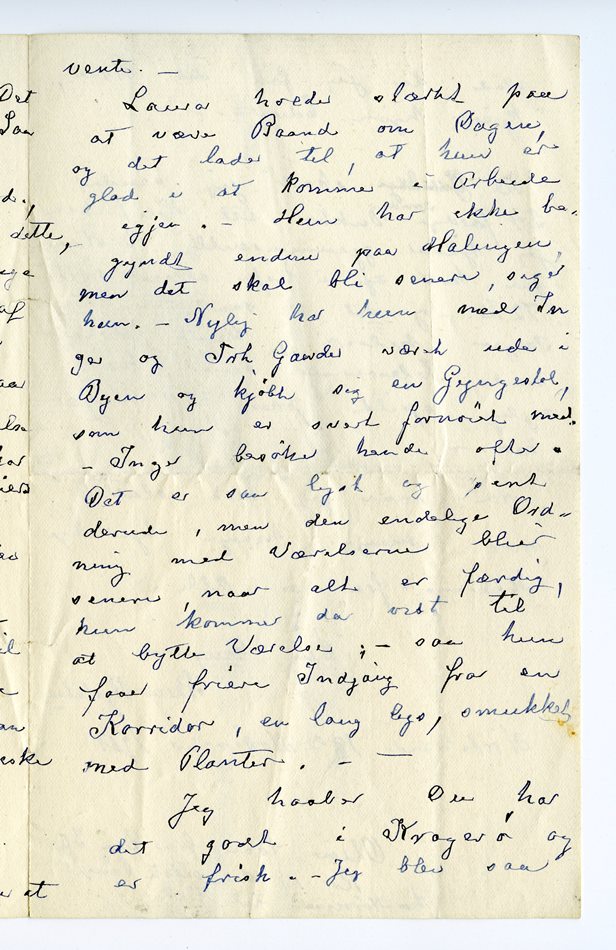 vente. —
Laura holder stærkt paa
at væve Baand om Dagen,
og det lader til, at hun er
glad i at komme i Arbeide
igjen. — Hun har ikke be-
gyndt endnu paa Malingen,
men det skal bli senere, siger
hun. — Nylig har hun med In
ger og Frk Gaude været ude i
Byen og kjøbt sig en Gyngestol,
som hun er svært fornøiet med.
— Inger besøker hende ofte.
Det er saa lyst og pent
derude, men den endelige Ord-
ning med Værelserne blir
senere, naar alt er færdig,
hun kommer da vist til
at bytte Værelse; — saa hun
faar friere Indgang fra en
Korridor, en lang lys, smukket
med Planter. — —
Jeg haaber Du har
det godt i Kragerø og
er frisk. — Jeg blev saa
Det
Saa
d.,
dette,
af
at